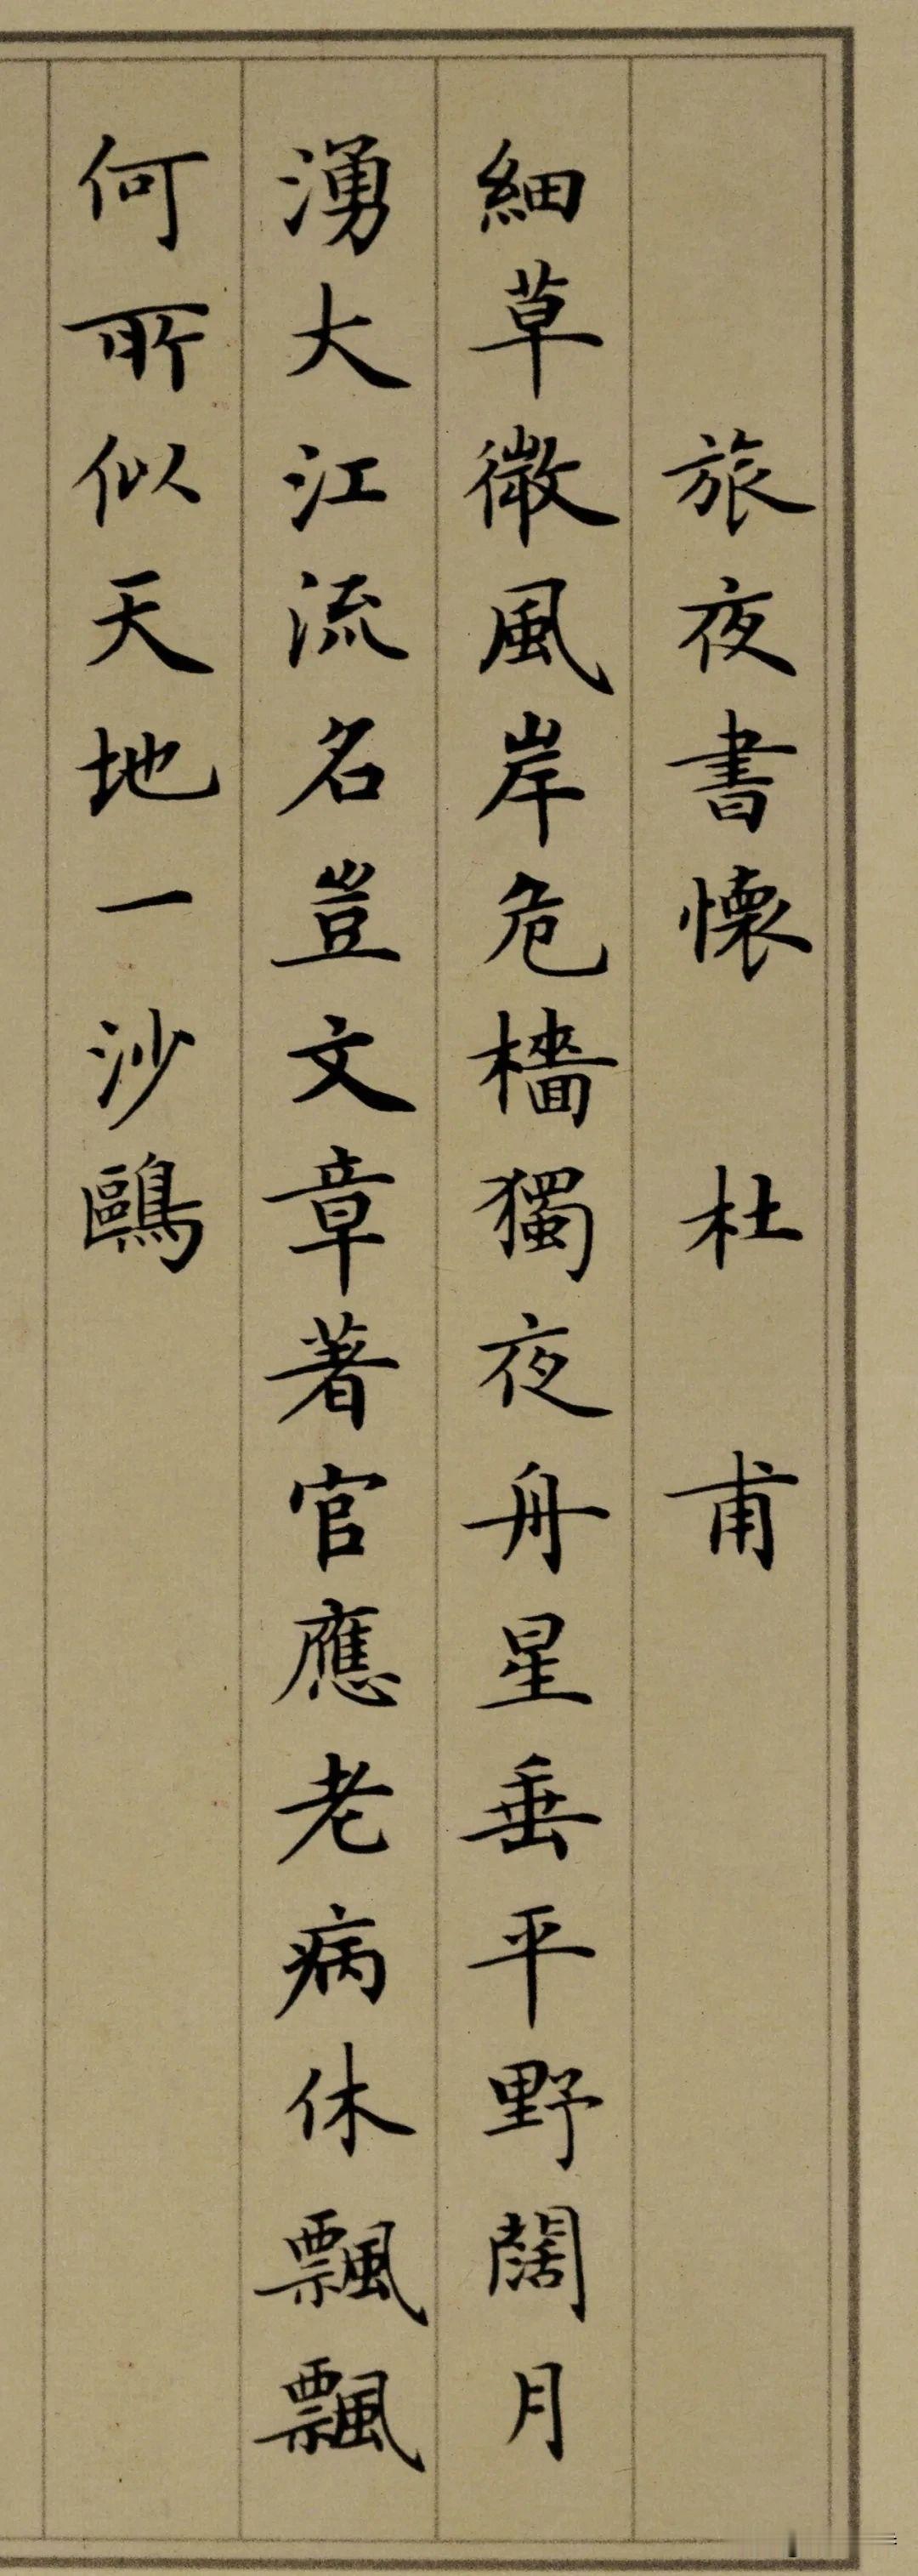 旅夜書懷 杜甫
細草微風岸危檣獨夜舟星垂平野闊月
湧大江流名豈文章著官應老病休飄飄
何所似天地一沙鷗